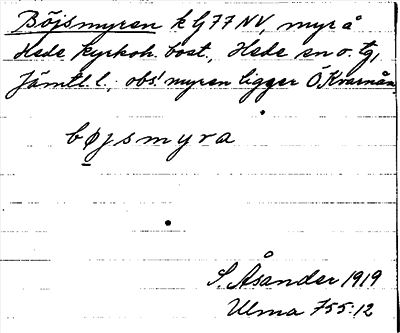 Böjsmyren k Gj 77 NV myr å
Hede kyrkoh. bost., Hede sn o. tg,
Jämtl. l., obs! myren ligger Ö Kvarnån
bøjsmyra
S. Åsander 1919
Ulma 755:12